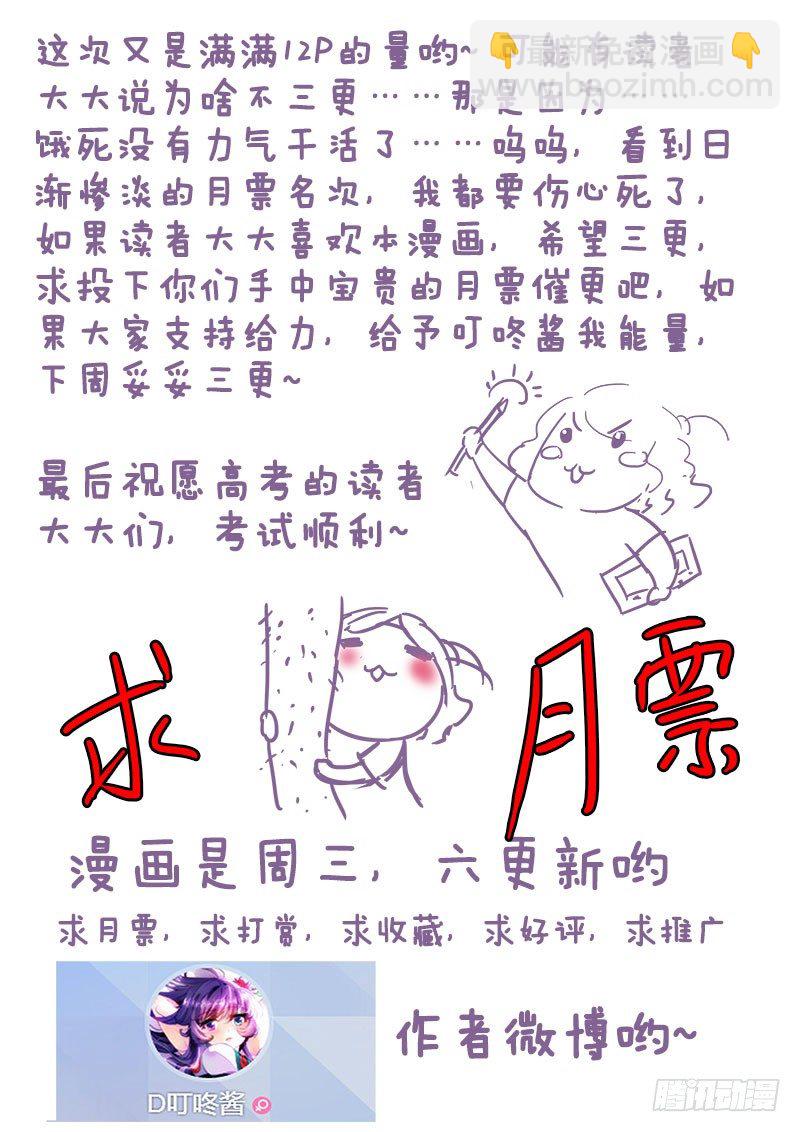 这次又是满满12P的量哟~ 可能有读者
👇最新免费漫画👇
www.baozimh.com
大大说为啥不三更……那是因为……
饿死没有力气干活了……呜呜,看到日
渐惨淡的月票名次,我都要伤心死了,
如果读者大大喜欢本漫画,希望三更,
求投下你们手中宝贵的月票催更吧,如
果大家支持给力,给予叮咚酱我能量,
下周妥妥三更~
最后祝愿高考的读者
大大们,考试顺利~
求 月票
漫画是周三,六更新哟
求月票,求打赏,求收藏,求好评,求推广
作者微博哟~
D叮咚酱
腾讯动漫